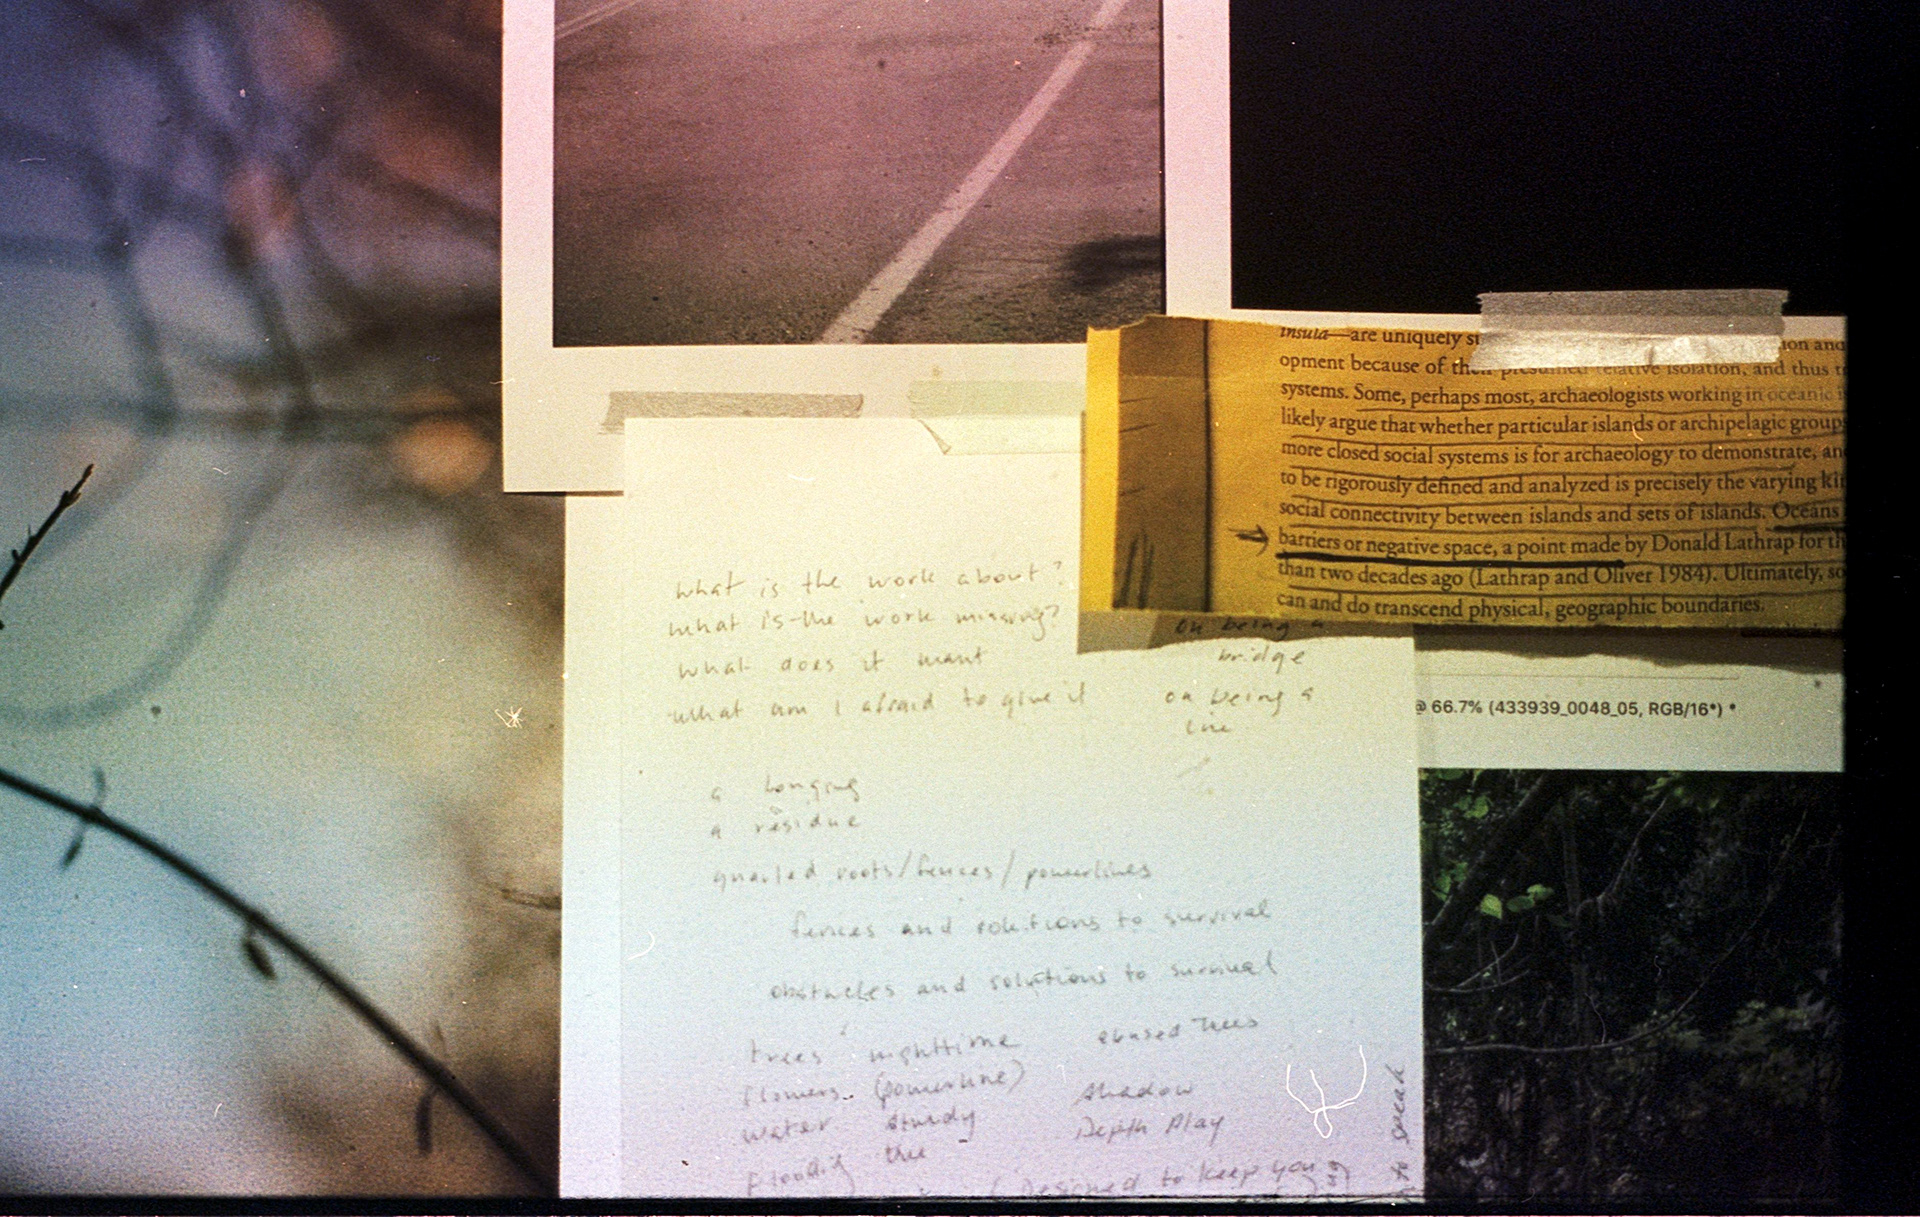 insula—are uniquely
opment because of their presumed relative isolation, and thus
systems. Some, perhaps most, archaeologists working in oceanic
likely argue that whether particular islands or archipelagic group
more closed social systems is for archaeology to demonstrate, an
to be rigorously defined and analyzed is precisely the varying ki
social connectivity between islands and sets of islands. Oceans
barriers or negative space, a point made by Donald Lathrap for th
than two decades ago (Lathrap and Oliver 1984). Ultimately, so
can and do transcend physical, geographic boundaries.
@ 66.7% (433939_0048_05, RGB/16*) *
what is the work about?
what is the work missing?
what does it want
what am I afraid to give it
on being a
bridge
on being a
line
a longing
a residue
gnarled roots/fences/powerlines
fences and solutions to survival
obstacles and solutions to survival
trees nighttime
abused trees
flowers (powerline)
shadow
water study
Depth Play
flooding tree
(Designed to keep you
to sneak